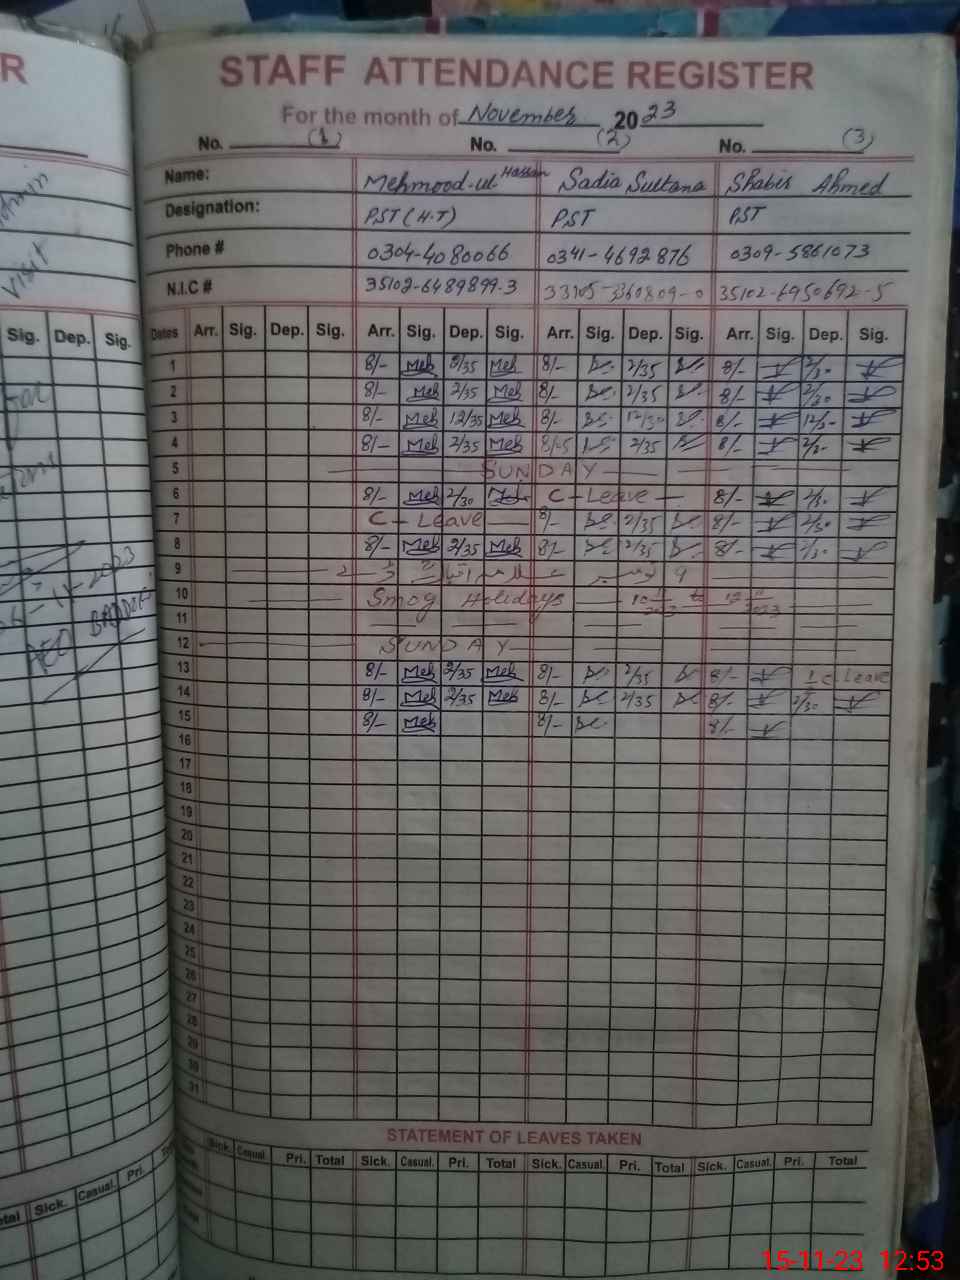 R
STAFF ATTENDANCE REGISTER
For the month of November 2023
No. (1) No. (2) No. (3)
Name: Mehmood-ul-Hassan Sadia Sultana Shabir Ahmed
Designation: PST (H.T) PST PST
Phone # 0304-4080066 0341-4692876 0309-5861073
N.I.C # 35102-6489899-3 35102-6950692-5
Sig. Dep. Sig. Dates Arr. Sig. Dep. Sig. Arr. Sig. Dep. Sig. Arr. Sig. Dep. Sig. Arr. Sig. Dep. Sig.
1 8/- Meh 2/35 Meh 8/- 2/35 8/- 2/30
2 8/- Meh 2/35 Meh 8/- 2/35 8/- 2/30
3 8/- Meh 12/35 Meh 8/- 12/30 8/- 12/30
4 8/- Meh 2/35 Meh 8/-5 2/35 8/-
5 SUNDAY
6 8/- Meh 2/30 Meh C-Leave 8/- 2/30
7 C-Leave 8/- 2/35 8/- 2/30
8 8/- Meh 2/35 Meh 8/- 2/35 8/- 2/30
9 ۹ نومبر
10 Smog Holidays to
11
12 SUNDAY
13 8/- Meh 2/35 Meh 8/- 2/35 8/- C. Leave
14 8/- Meh 2/35 Meh 8/- 2/35 8/- 2/30
15 8/- Meh 8/- 8/-
16
17
18
19
20
21
22
23
24
25
26
27
28
29
30
31
visit
STATEMENT OF LEAVES TAKEN
Sick. Casual. Pri. Total Sick. Casual. Pri. Total Sick. Casual. Pri. Total Sick. Casual. Pri. Total
Sick. Casual. Pri.
15-11-23 12:53